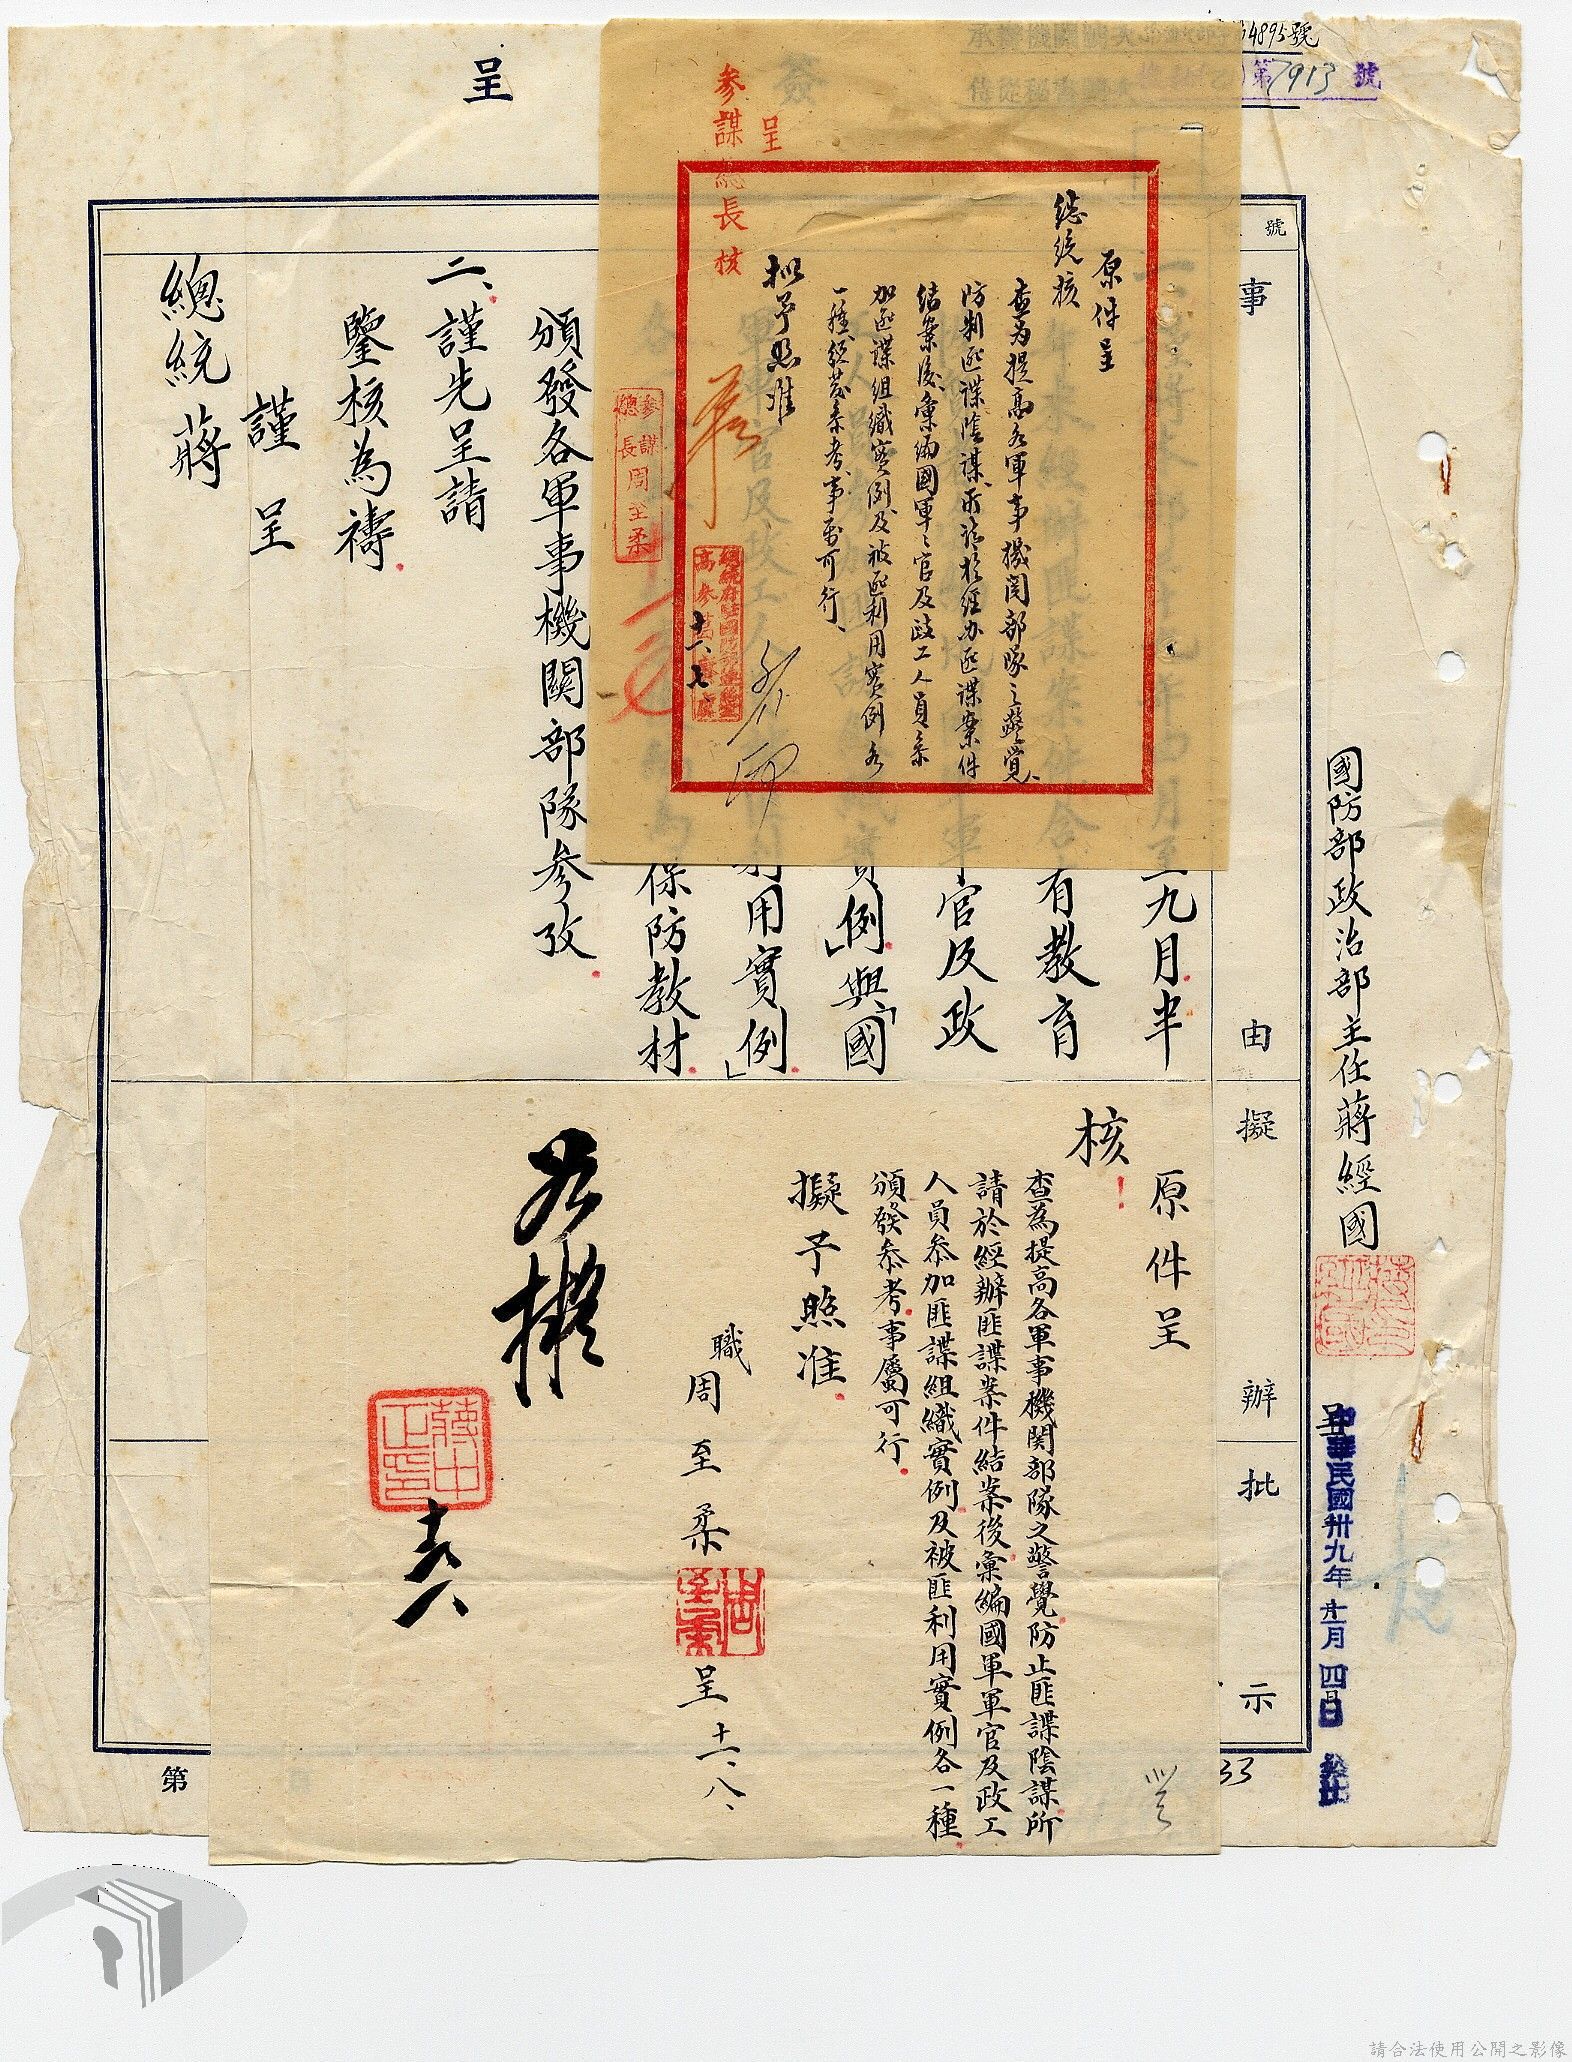 4895號
第7913號
呈
國防部政治部主任蔣經國
呈
中華民國卅九年十一月四日
號
事
由
擬
辦
批
示
至九月半
有教育
軍官及政
實例」與「國
利用實例」
保防教材
頒發各軍事機關部隊參攷
二、謹先呈請
鑒核為禱
謹呈
總統蔣
第
33
參謀總長核
呈
原件呈
總統核
查為提高各軍事機関部隊之警覺、
防制匪諜陰謀、所請於經办匪諜案件
結案後、彙編國軍之官及政工人員參
加匪諜組織實例及被匪利用實例各
一種、頒發參考、事屬可行、
拟予照准
參謀總長周至柔
十一、七
原件呈
核
查為提高各軍事機関部隊之警覺防止匪諜陰謀所
請於經辦匪諜案件結案後彙編國軍軍官及政工
人員叅加匪諜組織實例及被匪利用實例各一種
頒發叅考事屬可行
擬予照准
職周至柔
周至柔
呈十一、八、
如擬
蔣中正印
十一、八
請合法使用公開之影像